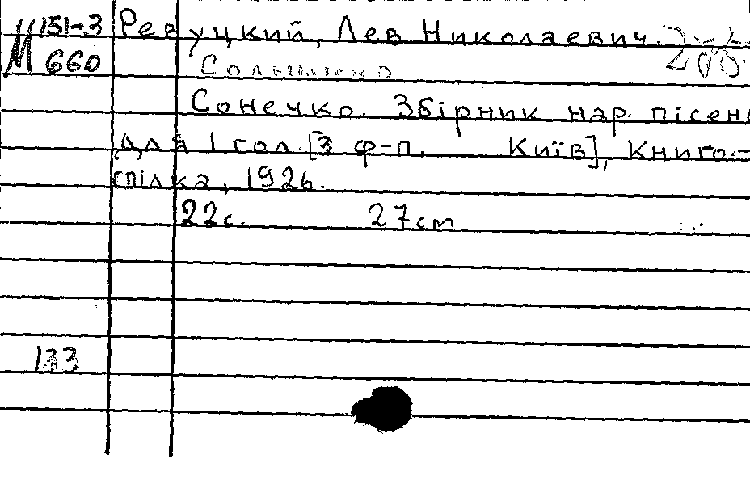 М 151-3 Ревуцкий, Лев Николаевич.
660
Сонечко. Збірник нар. пісень
для 1 гол. [З ф-п. Київ], Книго-
спілка, 1926.
22с. 27см
133